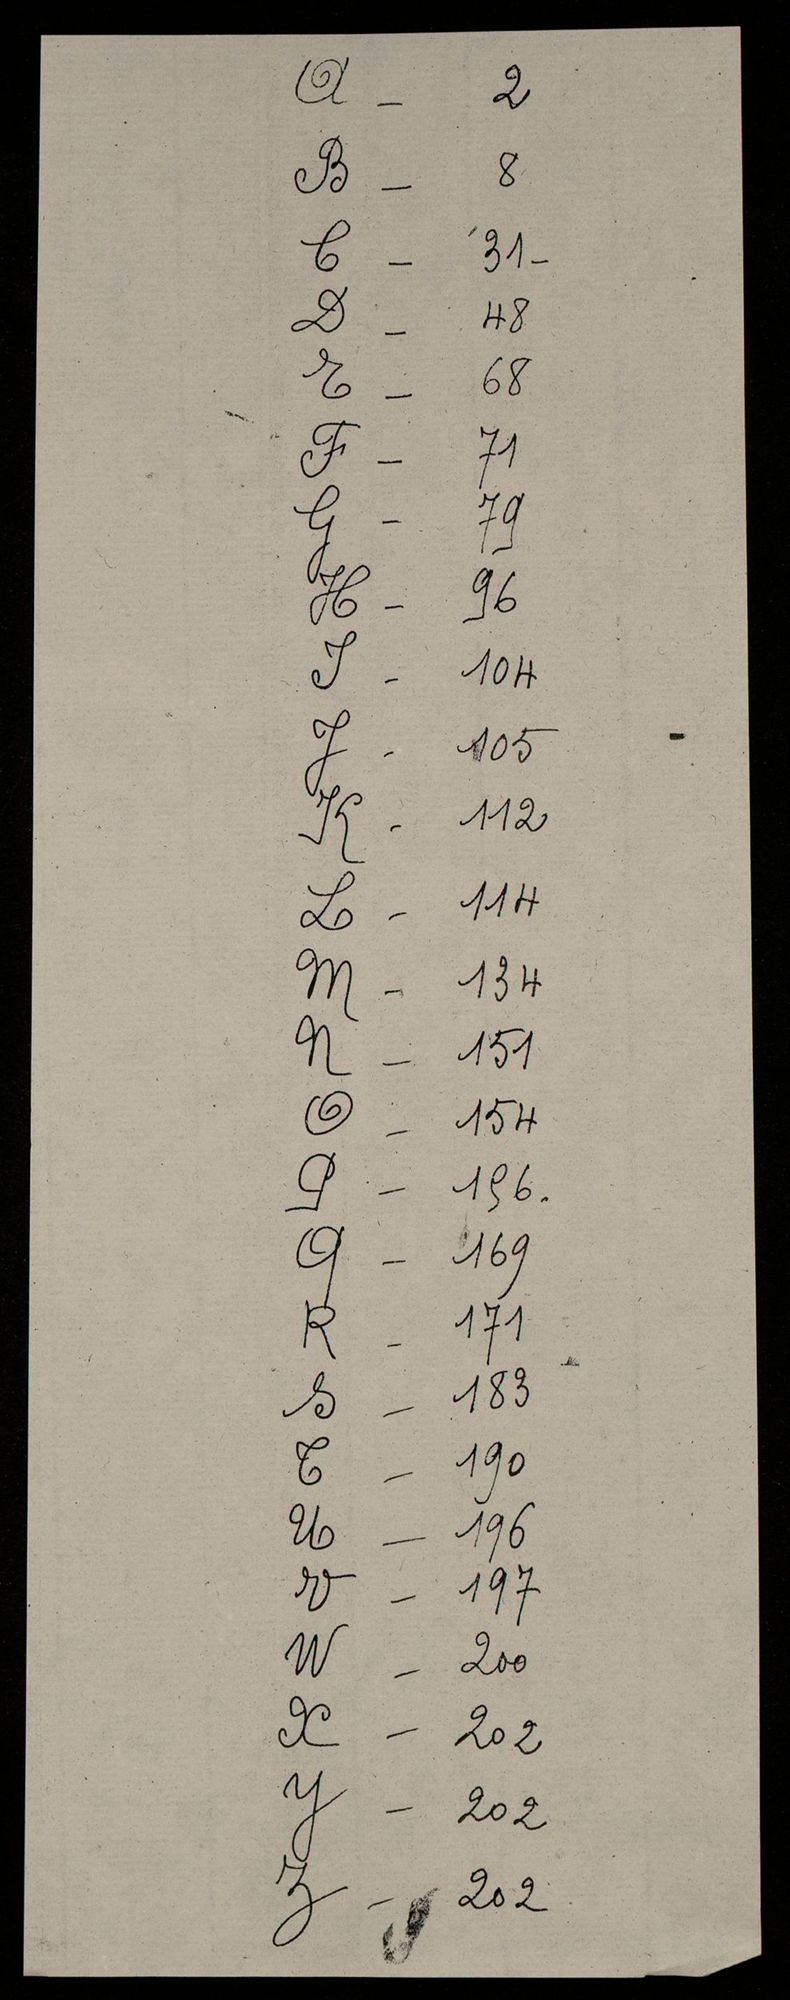 A - 2
B - 8
C - 31-
D - 48
E - 68
F - 71
G - 79
H - 96
I - 104
J - 105
K - 112
L - 114
M - 134
N - 151
O - 154
P - 156.
Q - 169
R - 171
S - 183
T - 190
U - 196
V - 197
W - 200
X - 202
Y - 202
Z - 202